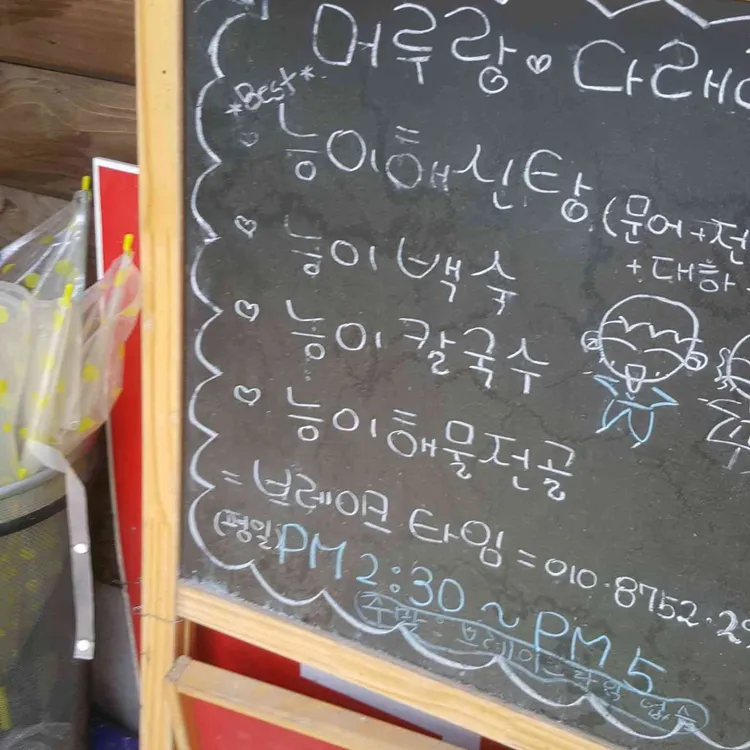 머루랑♡다래
*Best*
♡ 능이해신탕 (문어+전
+대하
♡ 능이백숙
♡ 능이칼국수
♡ 능이해물전골
= 브레이크 타임 = 010.8752.2
(평일) PM 2:30 ~ PM 5
주말 : 브레이크타임 없음